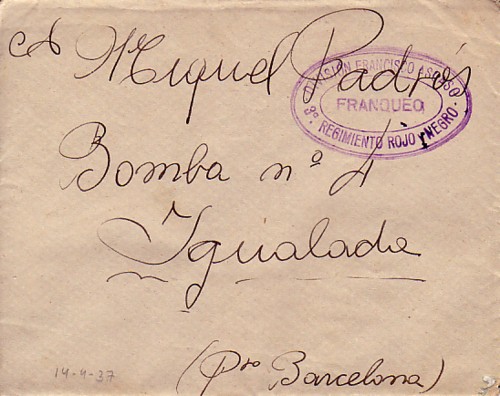 Cd Miguel Padrós
DIVISIÓN FRANCISCO ASCASO
FRANQUEO
3º. REGIMIENTO ROJO y NEGRO.
Bomba nº 4
Igualada
14-4-37
(Pro Barcelona)